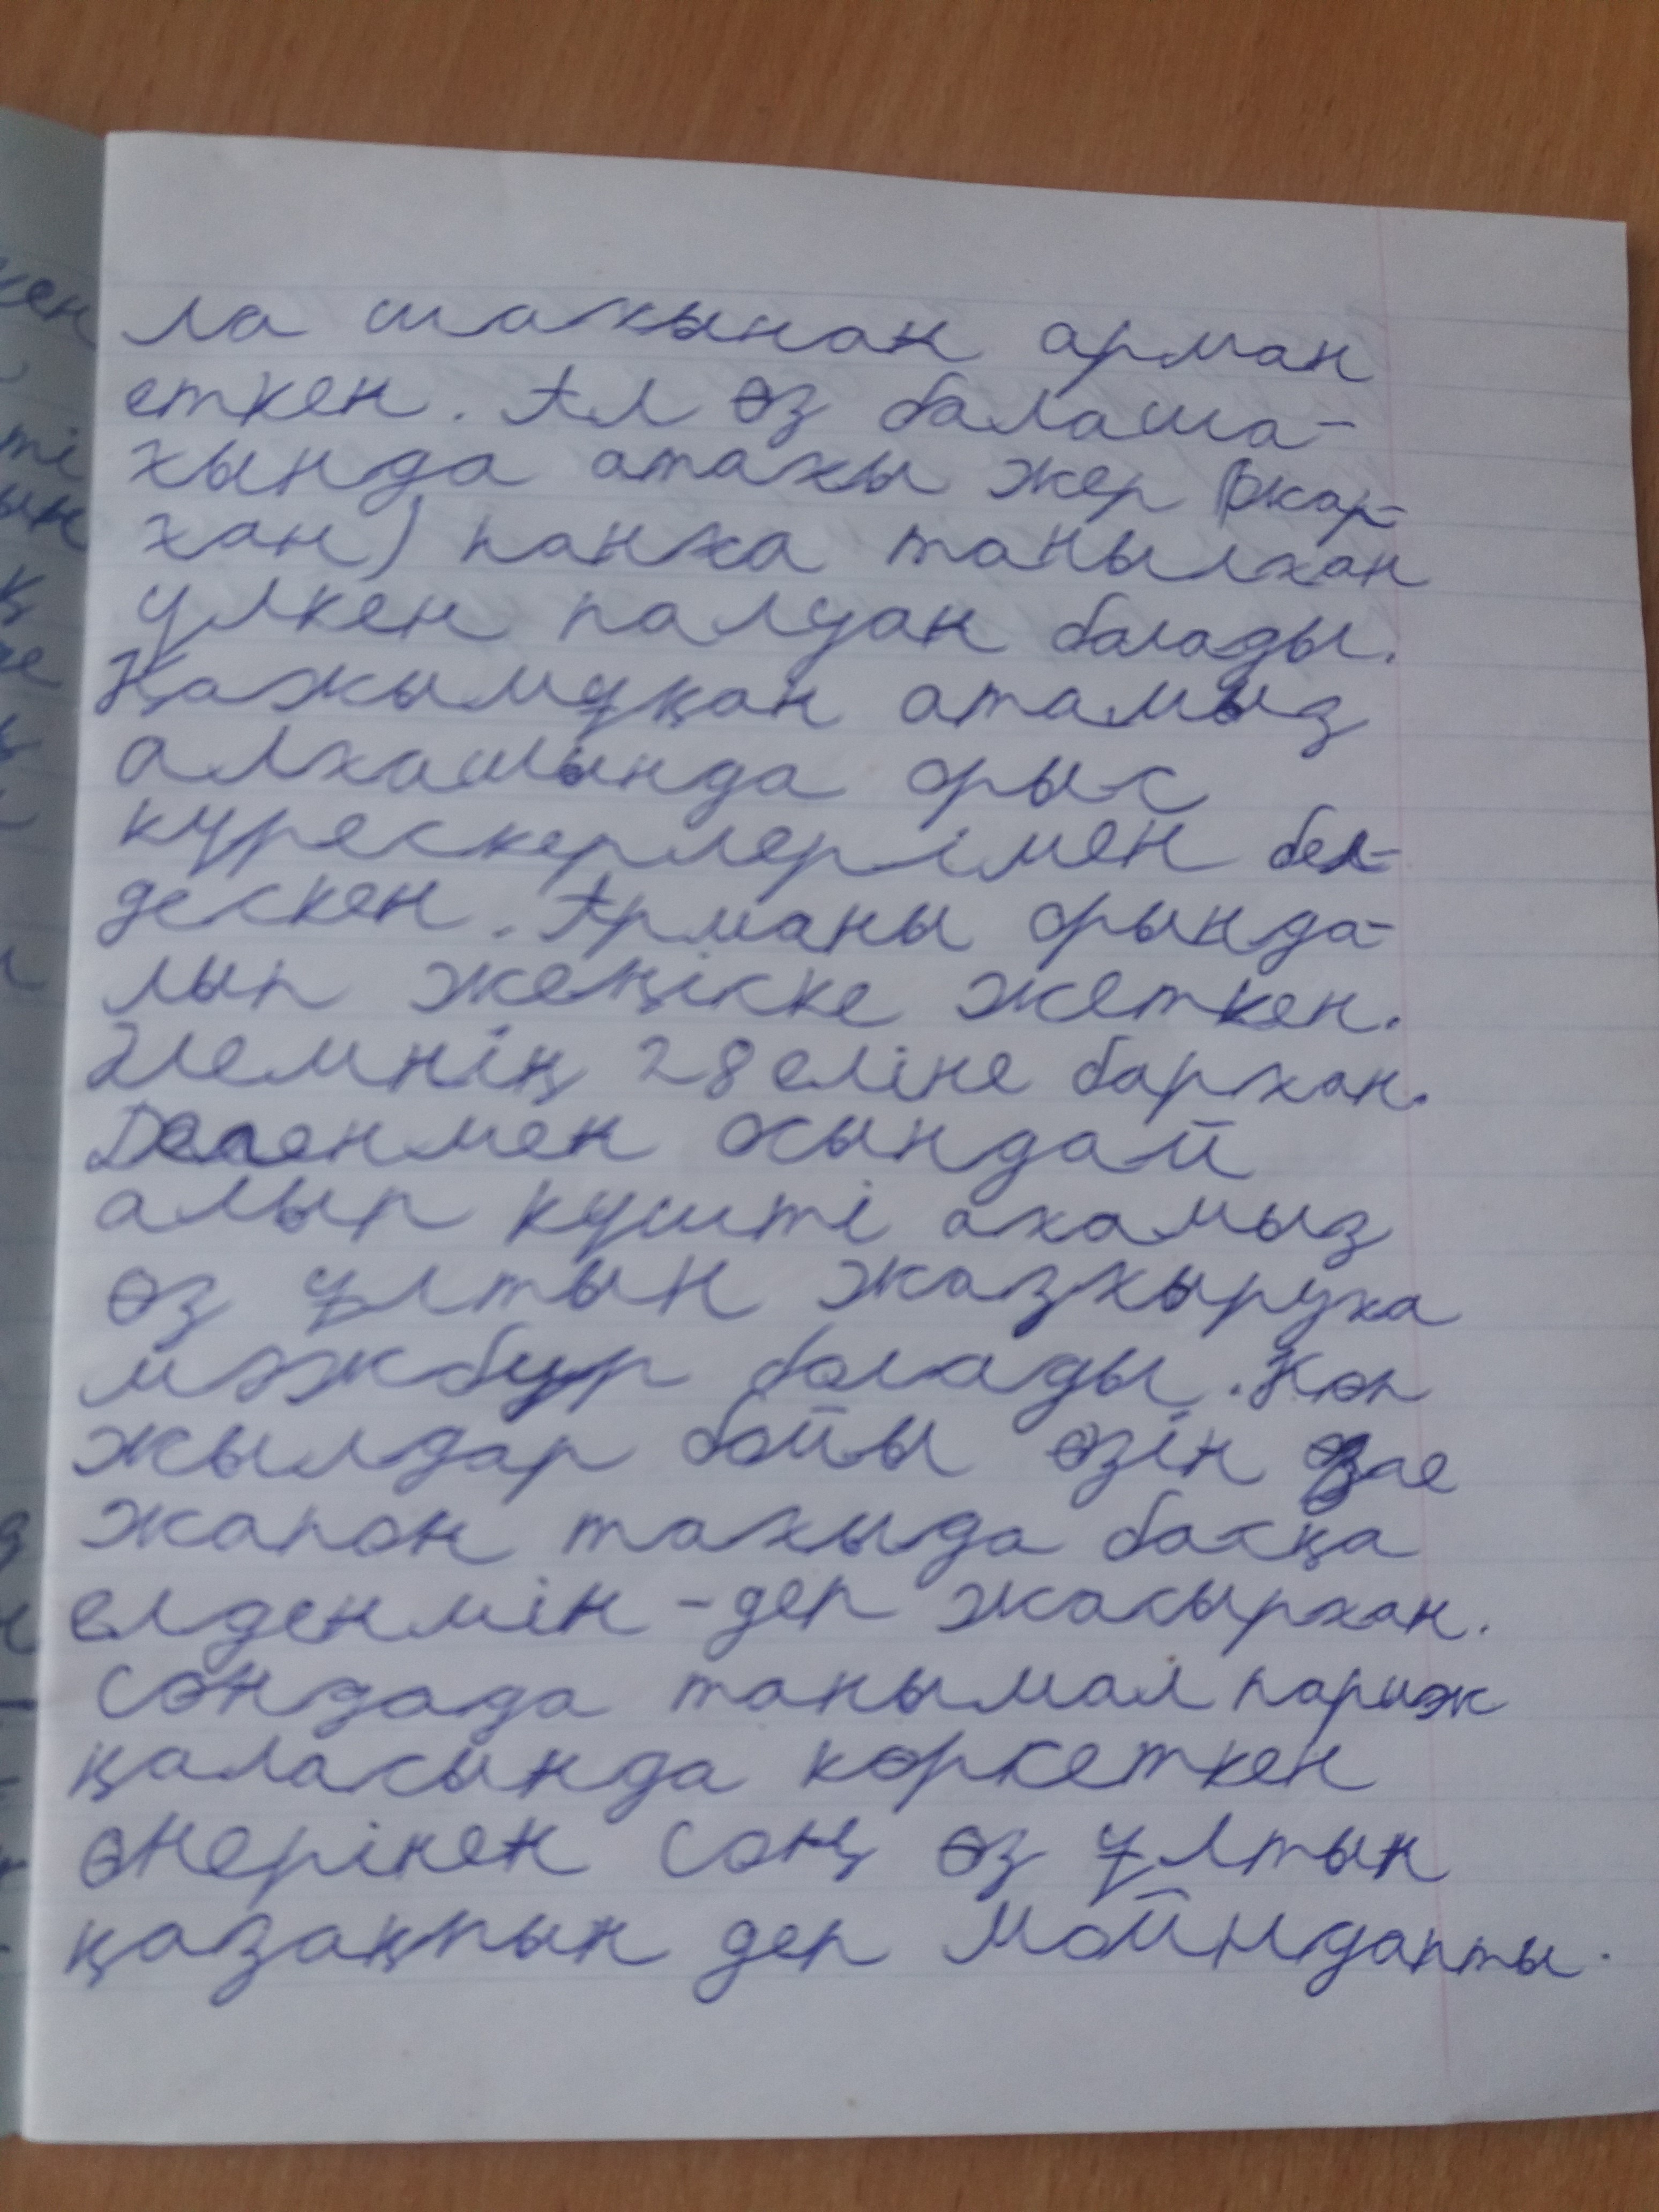 ла шағынан арман
еткен. Ал өз балаша-
ғында атағы жер (жар-
ған) панға танылған
үлкен палуан болады.
Қажымұқан атамыз
алғашында орыс
күрескерлерімен бел-
дескен. Арманы орында-
лып жеңіске жеткен.
Әлемнің 28 еліне барған.
Дегенмен осындай
алып күшті ағамыз
өз ұлтын жазғыруға
мәжбүр болады. Көп
жылдар бойы өзін
жапон тағыда басқа
елденмін - деп жасырған.
Сондада танымал париж
қаласында көрсеткен
өнерінен соң өз ұлтын
қазақпын деп мойндапты.